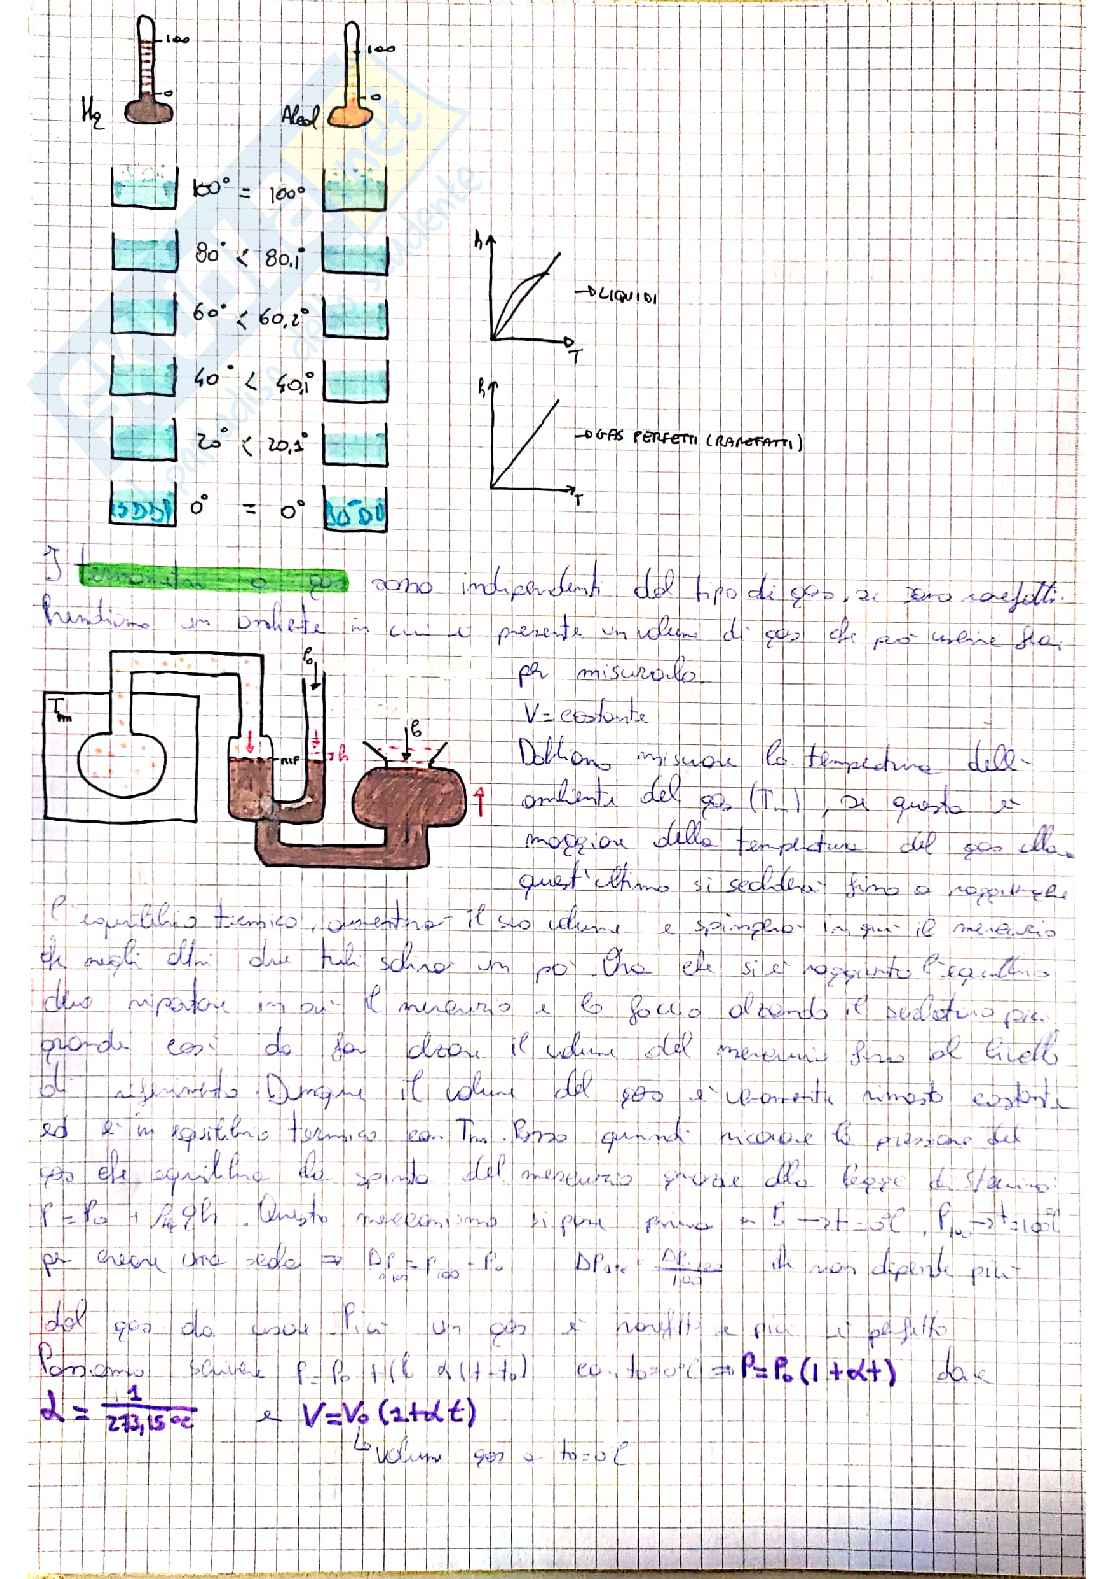 100
0
Hg
100
0
Alcol
100° = 100°
80° < 80,1°
60° < 60,2°
40° < 40,1°
20° < 20,1°
0° = 0°
h
T
→ LIQUIDI
h
T
→ GAS PERFETTI (RAREFATTI)
I termometri a gas sono indipendenti dal tipo di gas, se sono rarefatti.
Prendiamo un ambiente in cui è presente un volume di gas che può venire fuori
per misurarlo
V = costante
Dobbiamo misurare la temperatura dell'
ambiente del gas (Tm), se questa è
maggiore della temperatura del gas allora
quest'ultimo si scalderà fino a raggiungere
Tm
P₀
rif
h
P₀
l'equilibrio termico, aumenterà il suo volume e spingerà in giù il mercurio
che negli altri due tubi salirà un po'. Ora che si è raggiunto l'equilibrio
devo riportare in su il mercurio e lo faccio alzando il serbatoio più
grande così da far alzare il volume del mercurio fino al livello
di riferimento. Dunque il volume del gas è veramente rimasto costante
ed è in equilibrio termico con Tm. Posso quindi ricavare la pressione del
gas che equilibra la spinta del mercurio grazie alla legge di Stevino:
P = P₀ + ρHg g h. Questo meccanismo si pone prima a P₀ → t = 0°C, P₁₀₀ → t = 100°C
per creare una scala ⇒ ΔP = P₁₀₀ - P₀ che non dipende più
dal gas da usare. Più un gas è rarefatto e più è perfetto
Possiamo scrivere P = P₀ + P₀ α (t - t₀) con t₀ = 0°C ⇒ P = P₀ (1 + αt) dove
α = 1/273,15°C e V = V₀ (1 + αt)
↳ volume gas a t₀ = 0°C